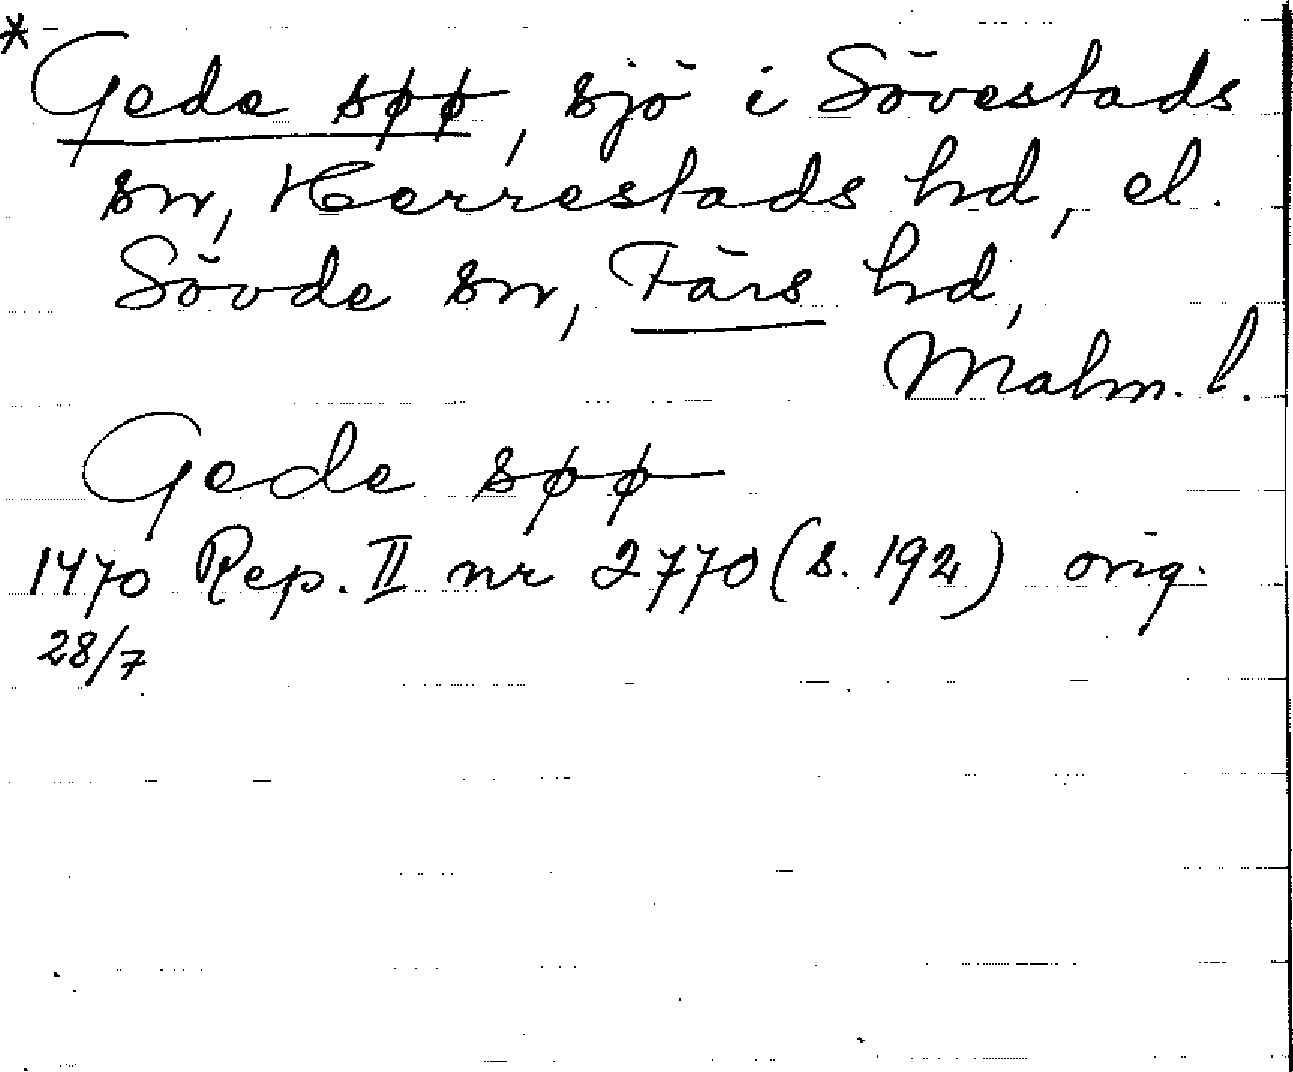 * Gede søø, sjö i Sövestads
sn, Herrestads hd, el.
Sövde sn, Färs hd,
Malm. l.
Gede søø
1470 Rep. II nr 2770 (s. 192) orig.
28/7